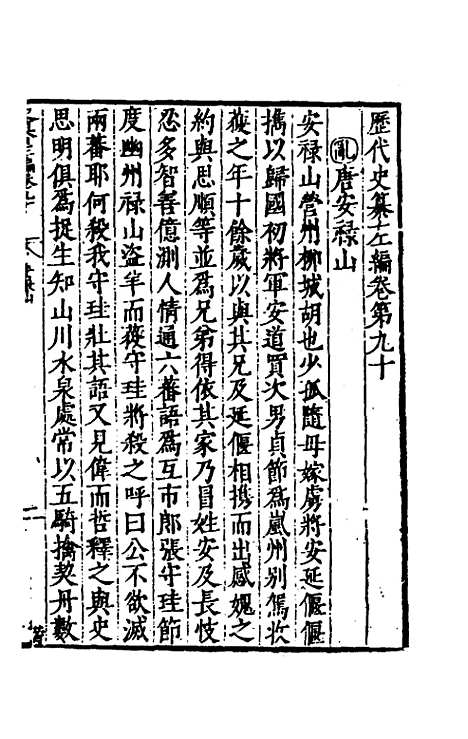 歷代史纂左編卷第九十
亂唐安祿山
安祿山營州柳城胡也少孤隨母嫁虜將安延偃偃
攜以歸國初將軍安道買次男貞節為嵐州別駕收
獲之年十餘歲以與其兄及延偃相携而出感愧之
約與思順等並為兄弟得依其家乃冒姓安及長忮
忍多智善億測人情通六蕃語為互市郎張守珪節
度幽州祿山盜羊而獲守珪將殺之呼曰公不欲滅
兩蕃耶何殺我守珪壯其語又見偉而晳釋之與史
思明俱為捉生知山川水泉處常以五騎擒契丹數